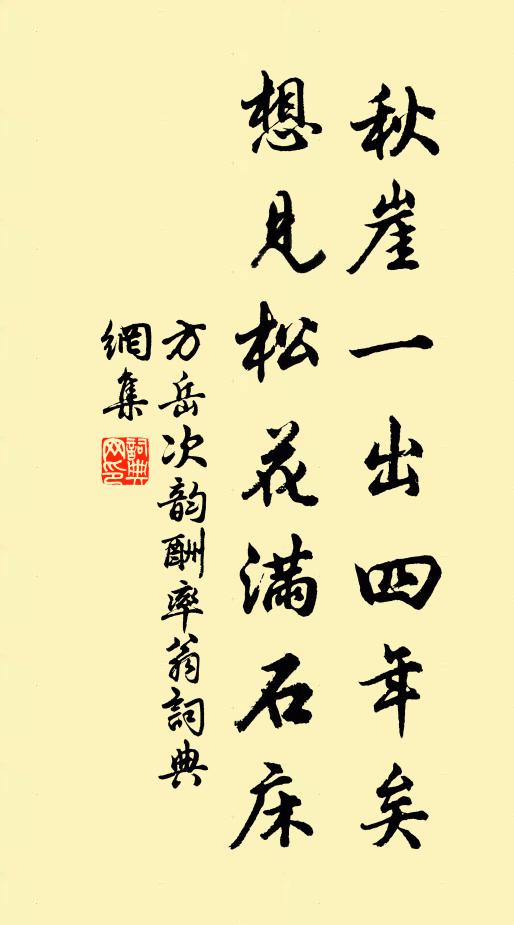 秋崖一出四年矣
想見松花满石床
方岳次韵酬率翁詞典
網集
詞典網印